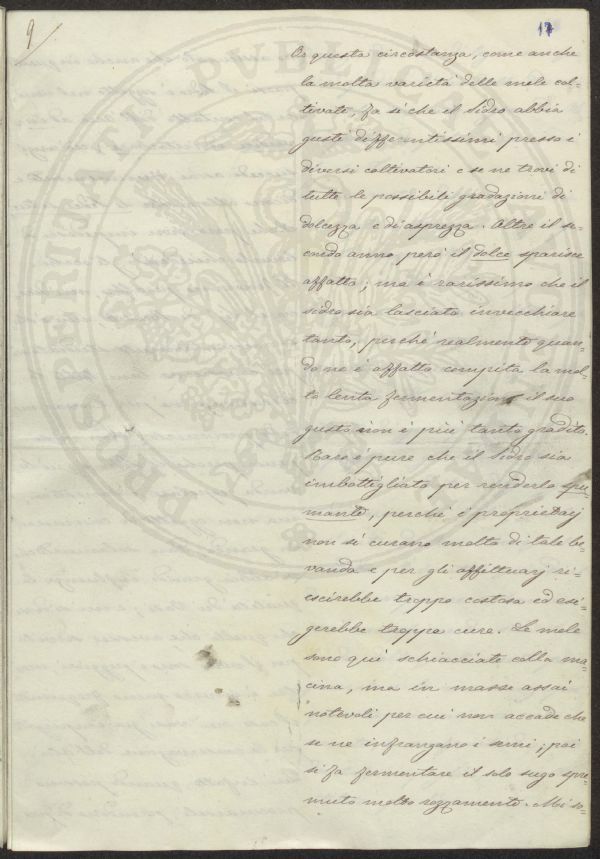 9
17
E questa circostanza, come anche
la molta varietà delle mele col-
tivate, fa sì che il sidro abbia
gusti differentissimi presso i
diversi coltivatori e se ne trovi di
tutte le possibili gradazioni di
dolcezza e di asprezza. Oltre il se-
condo anno però il dolce sparisce
affatto; ma è rarissimo che il
sidro sia lasciato invecchiare
tanto, perchè realmente quan-
do ne è affatto compita la mol-
to lenta fermentazione il suo
gusto non è più tanto gradito.
Raro è pure che il sidro sia
imbottigliato per renderlo spu-
mante, perchè i proprietarj
non si curano molto di tale be-
vanda e per gli affittuarj ri-
escirebbe troppo costosa ed esi-
gerebbe troppe cure. Le mele
sono qui schiacciate colla ma-
cina, ma in masse assai
notevoli per cui non accade che
se ne infrangano i semi; poi
si fa fermentare il solo sugo spre-
muto molto rozzamente. Mi so-
PROSPERITATI PUBLICAE